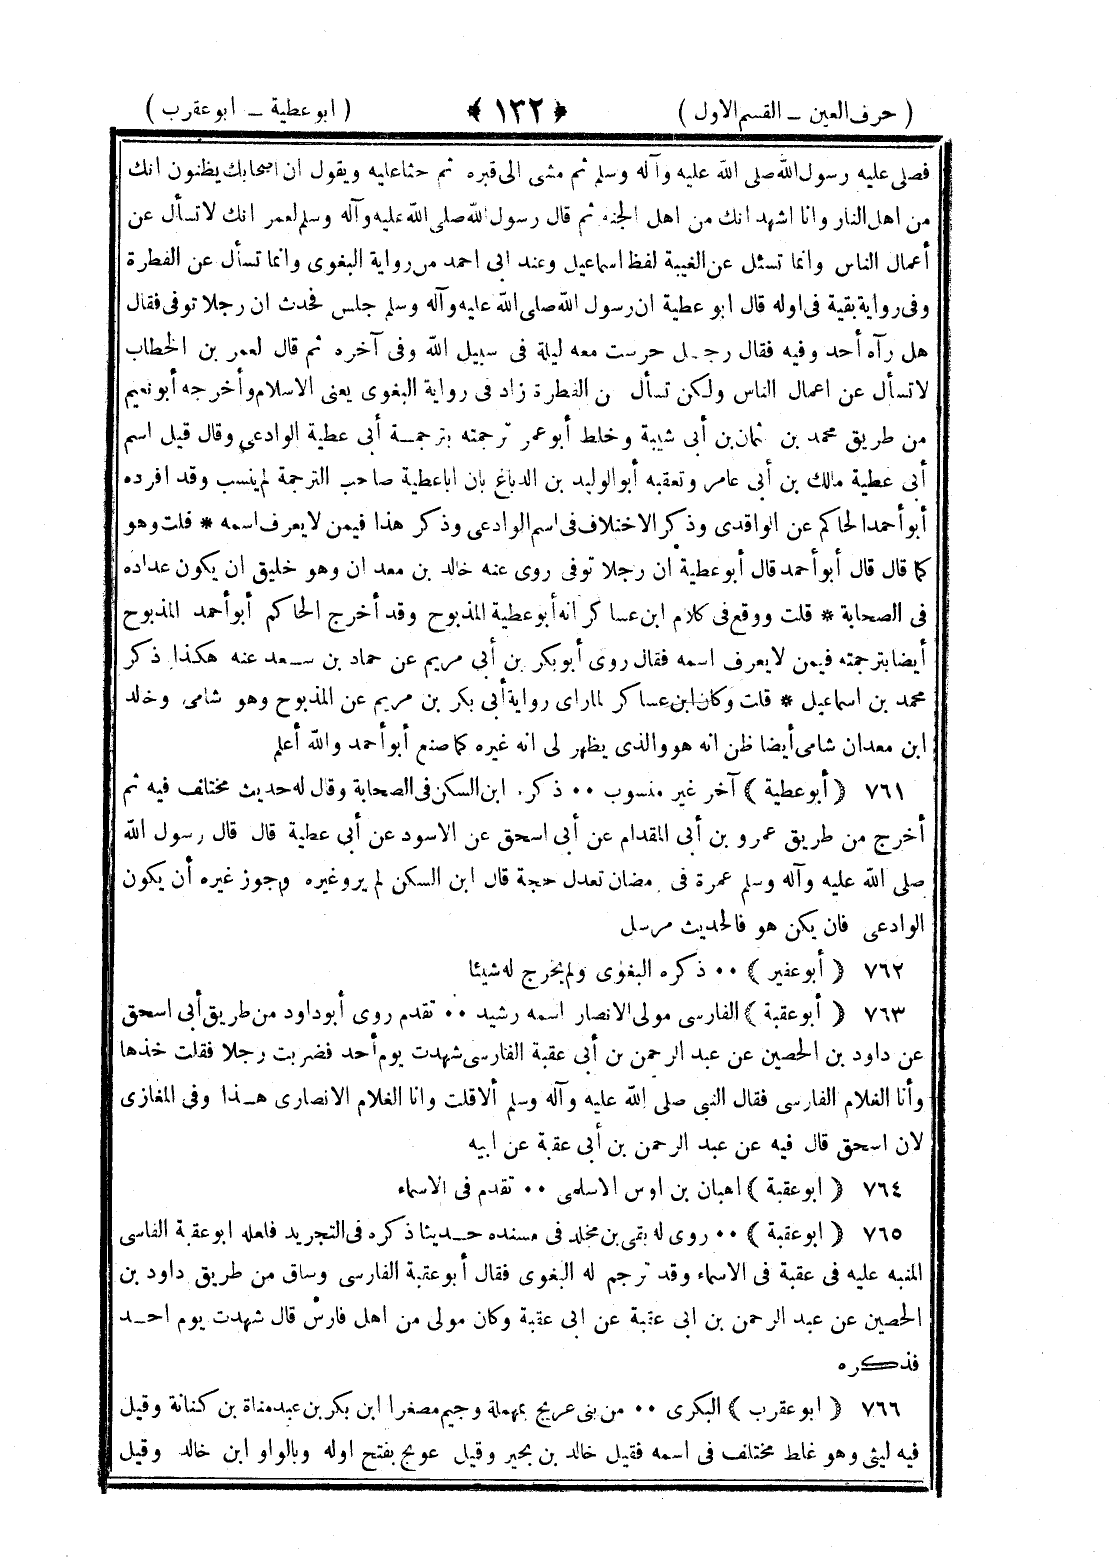 ( حرف العين ــ القسم الاول ) ﴿ ١٣٢ ﴾ ( ابو عطية ــ ابو عقرب )
فصلى عليه رسول الله صلى الله عليه وآله وسلم ثم مشى الى قبره ثم حثا عليه ويقول ان اصحابك يظنون انك
من اهل النار وانا اشهد انك من اهل الجنة ثم قال رسول الله صلى الله عليه وآله وسلم لعمر انك لا تسأل عن
أعمال الناس وانما تسئل عن الغيبة لفظ اسماعيل وعند ابى احمد من رواية البغوى وانما تسأل عن الفطرة
وفى رواية بقية فى اوله قال ابو عطية ان رسول الله صلى الله عليه وآله وسلم جلس فحدث ان رجلا توفى فقال
هل رآه أحد وفيه فقال رجل حرست معه ليلة فى سبيل الله وفى آخره ثم قال لعمر بن الخطاب
لا تسأل عن اعمال الناس ولكن تسأل ن الفطرة زاد فى رواية البغوى يعنى الاسلام وأخرجه أبو نعيم
من طريق محمد بن ثمان بن أبى شيبة وخلط أبو عمر ترجمته بترجمة أبى عطية الوادعى وقال قيل اسم
أبى عطية مالك بن أبى عامر وتعقبه أبو الوليد بن الدباغ بان ابا عطية صاحب الترجمة لم ينسب وقد افرده
أبو أحمد الحاكم عن الواقدى وذكر الاختلاف فى اسم الوادعى وذكر هذا فيمن لا يعرف اسمه * قلت وهو
كما قال قال أبو أحمد قال أبو عطية ان رجلا توفى روى عنه خالد بن معد ان وهو خليق ان يكون عداده
فى الصحابة * قلت ووقع فى كلام ابن عساكر انه أبو عطية المذبوح وقد أخرج الحاكم أبو أحمد المذبوح
أيضا بترجمته فيمن لا يعرف اسمه فقال روى أبو بكر بن أبي مريم عن حماد بن سعد عنه هكذا ذكر
محمد بن اسماعيل * قلت وكان ابن عساكر لما راى رواية أبى بكر بن مريم عن المذبوح وهو شامى وخالد
ابن معدان شامى أيضا ظن انه هو والذى يظهر لى انه غيره كما صنع أبو أحمد والله أعلم
٧٦١ ﴿ أبو عطية ﴾ آخر غير منسوب ٠٠ ذكره ابن السكن فى الصحابة وقال له حديث مختلف فيه ثم
أخرج من طريق عمرو بن أبى المقدام عن أبى اسحق عن الاسود عن أبى عطية قال قال رسول الله
صلى الله عليه وآله وسلم عمرة فى مضان تعدل حجة قال ابن السكن لم يرو غيره وجوز غيره أن يكون
الوادعى فان يكن هو فالحديث مرسل
٧٦٢ ﴿ أبو عفير ﴾ ٠٠ ذكره البغوى ولم يخرج له شيئا
٧٦٣ ﴿ أبو عقبة ﴾ الفارسى مولى الانصار اسمه رشيد ٠٠ تقدم روى أبو داود من طريق أبى اسحق
عن داود بن الحصين عن عبد الرحمن بن أبى عقبة الفارسى شهدت يوم أحد فضربت رجلا فقلت خذها
وأنا الغلام الفارسى فقال النبى صلى الله عليه وآله وسلم ألا قلت وانا الغلام الانصارى هذا وفى المغازى
لان اسحق قال فيه عن عبد الرحمن بن أبى عقبة عن ابيه
٧٦٤ ﴿ ابو عقبة ﴾ اهبان بن اوس الاسلمى ٠٠ تقدم فى الاسماء
٧٦٥ ﴿ ابو عقبة ﴾ ٠٠ روى له بقى بن مخلد فى مسنده حديثا ذكره فى التجريد فلعله ابو عقبة الفاسى
المنبه عليه فى عقبة فى الاسماء وقد ترجم له البغوى فقال أبو عقبة الفارسى وساق من طريق داود بن
الحصين عن عبد الرحمن بن ابى عقبة عن ابى عقبة وكان مولى من اهل فارس قال شهدت يوم احد
فذكره
٧٦٦ ﴿ ابو عقرب ﴾ البكرى ٠٠ من بنى عريج بمهملة وجيم مصغرا ابن بكر بن عبد مناة بن كنانة وقيل
فيه ليثى وهو غلط مختلف فى اسمه فقيل خالد بن بحير وقيل عويج بفتح اوله وبالواو ابن خالد وقيل